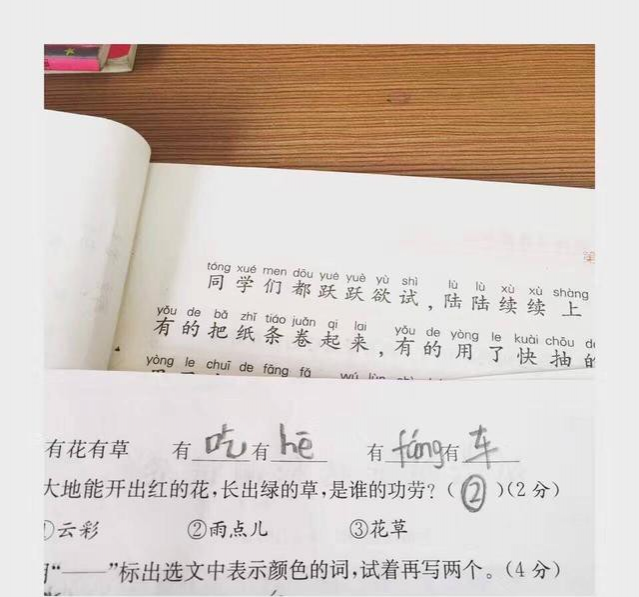 tóng xué men dōu yuè yuè yù shì lù lù xù xù shàng
同学们都跃跃欲试，陆陆续续上
yǒu de bǎ zhǐ tiáo juǎn qi lai yǒu de yòng le kuài chōu
有的把纸条卷起来，有的用了快抽的
yòng le chuī de fāng fǎ
有花有草 有吃有hē 有fáng有车
大地能开出红的花，长出绿的草，是谁的功劳？（②）（2分）
①云彩 ②雨点儿 ③花草
“——”标出选文中表示颜色的词，试着再写两个。（4分）